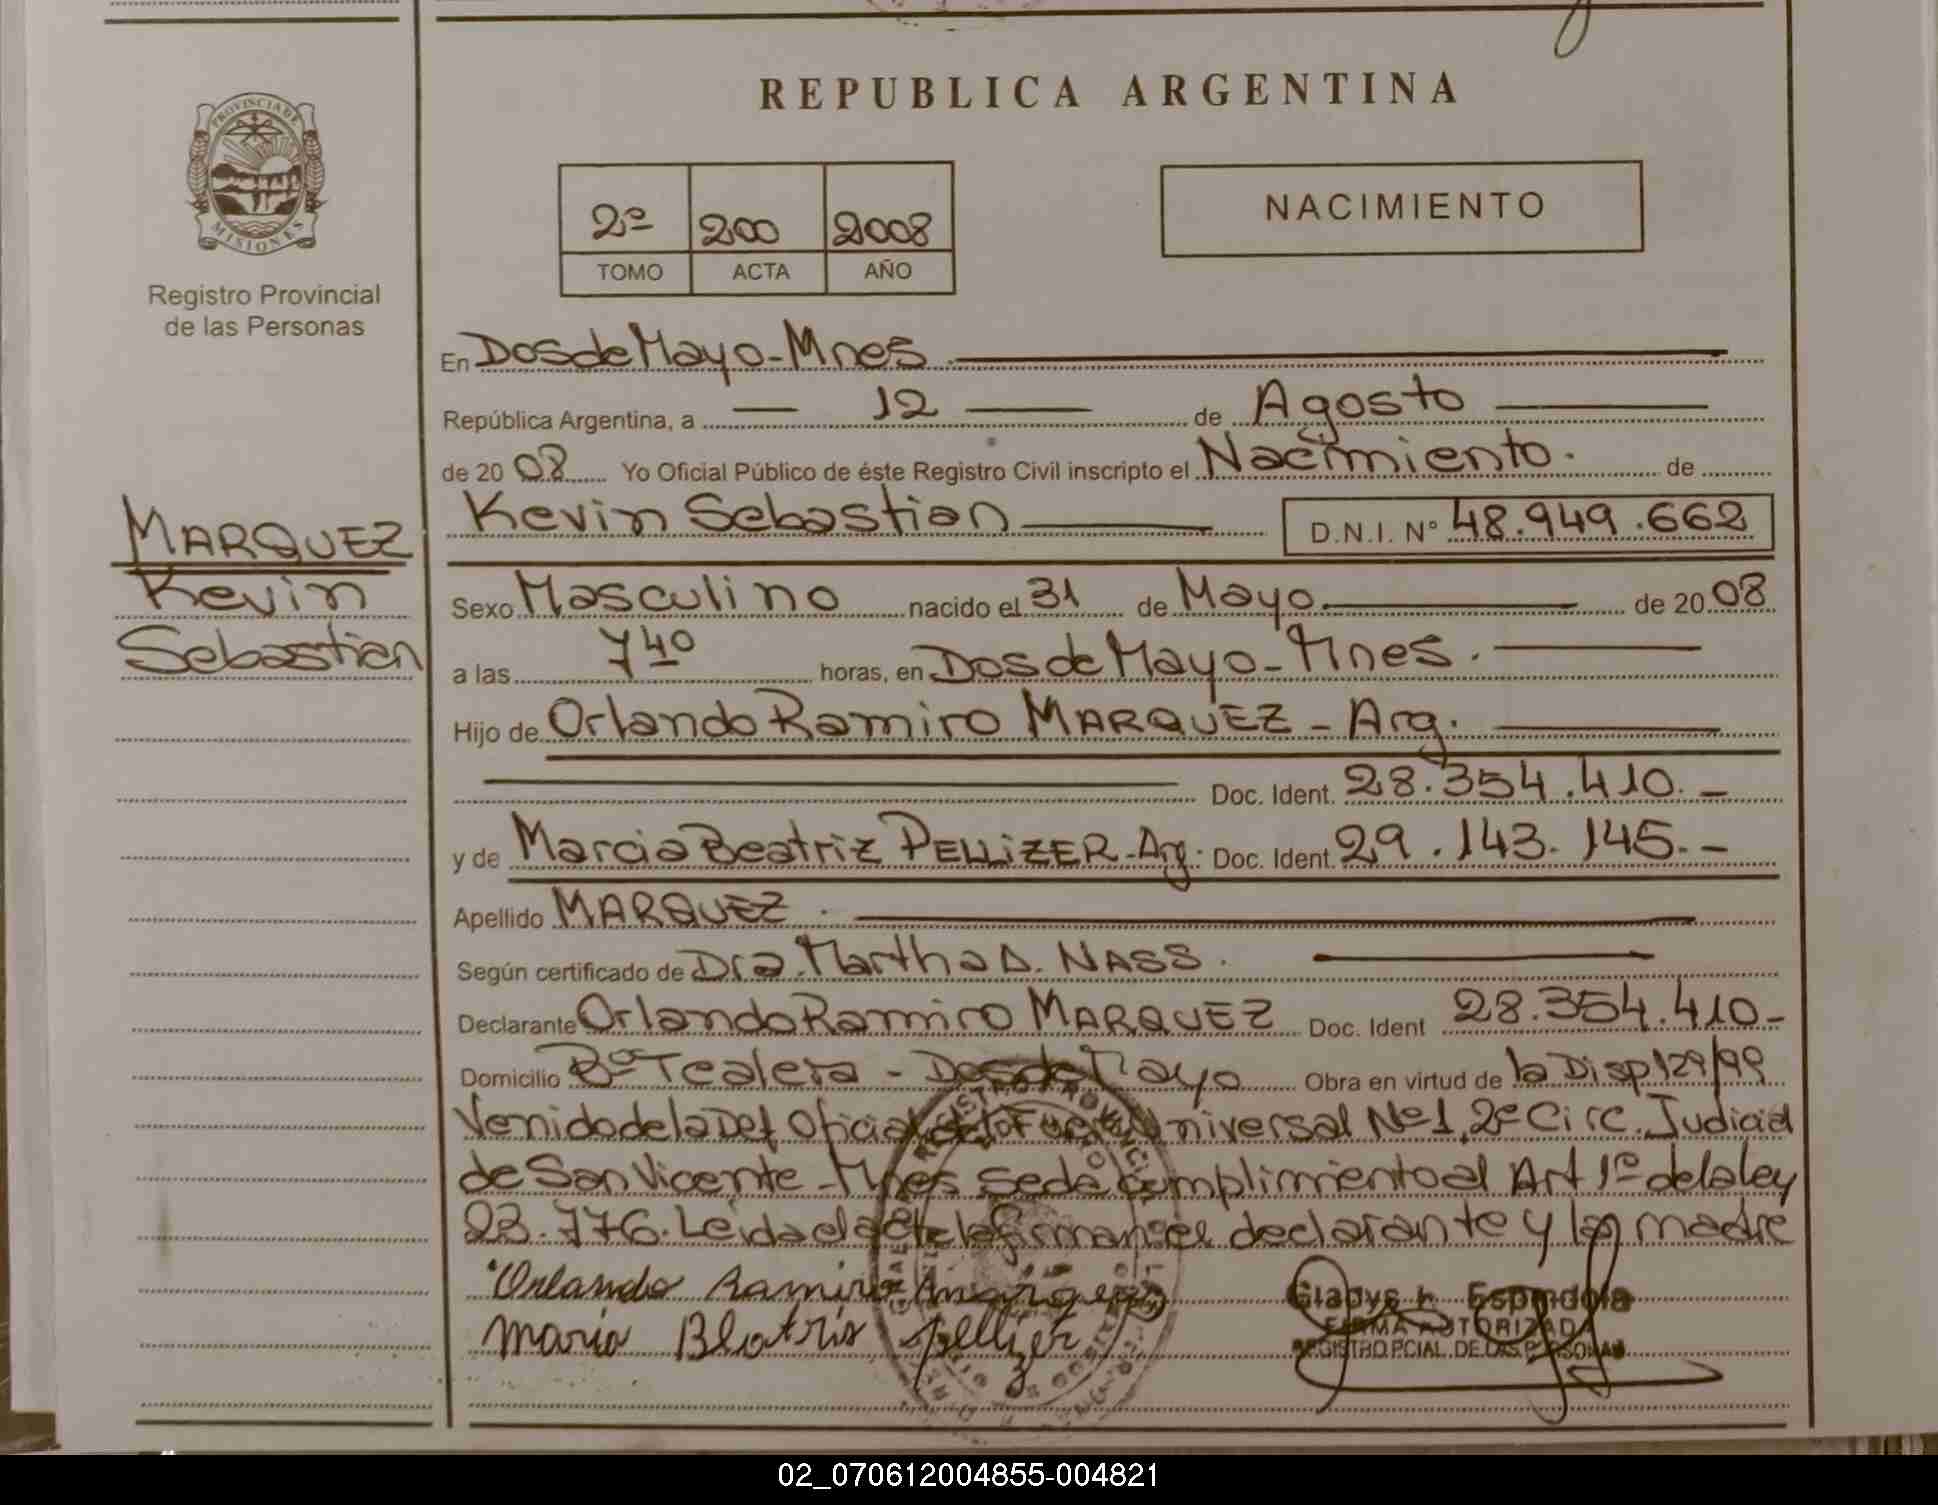 REPUBLICA ARGENTINA
PROVINCIA DE
MISIONES
Registro Provincial
de las Personas
2º 200 2008
TOMO ACTA AÑO
NACIMIENTO
En Dos de Mayo - Mnes.
República Argentina, a 12 de Agosto
de 20 08 Yo Oficial Público de éste Registro Civil inscripto el Nacimiento. de
MARQUEZ
Kevin
Sebastian
Kevin Sebastian D.N.I. Nº 48.949.662
Sexo Masculino nacido el 31 de Mayo de 20 08
a las 7 40 horas, en Dos de Mayo - Mnes.
Hijo de Orlando Ramiro MARQUEZ - Arg.
Doc. Ident. 28.354.410.-
y de Marcia Beatriz PELLIZER - Arg. Doc. Ident. 29.143.145.-
Apellido MARQUEZ.
Según certificado de Dra. Martha D. NASS.
Declarante Orlando Ramiro MARQUEZ Doc. Ident 28.354.410-
Domicilio Bº Tealera - Dos de Mayo Obra en virtud de la Disp 129/99
Venido de la Def Oficial Fuero Universal Nº1, 2º Circ. Judicial
de San Vicente - Mnes se dá cumplimiento al Art 1º de la ley
23.776. Leida el acta la firman el declarante y la madre
Orlando Ramiro Marquez
Maria Beatris Pellizer
Gladys L. Espindola
FIRMA AUTORIZADA
REGISTRO PCIAL. DE LAS PERSONAS
02_070612004855-004821